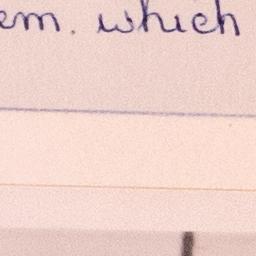 em. which